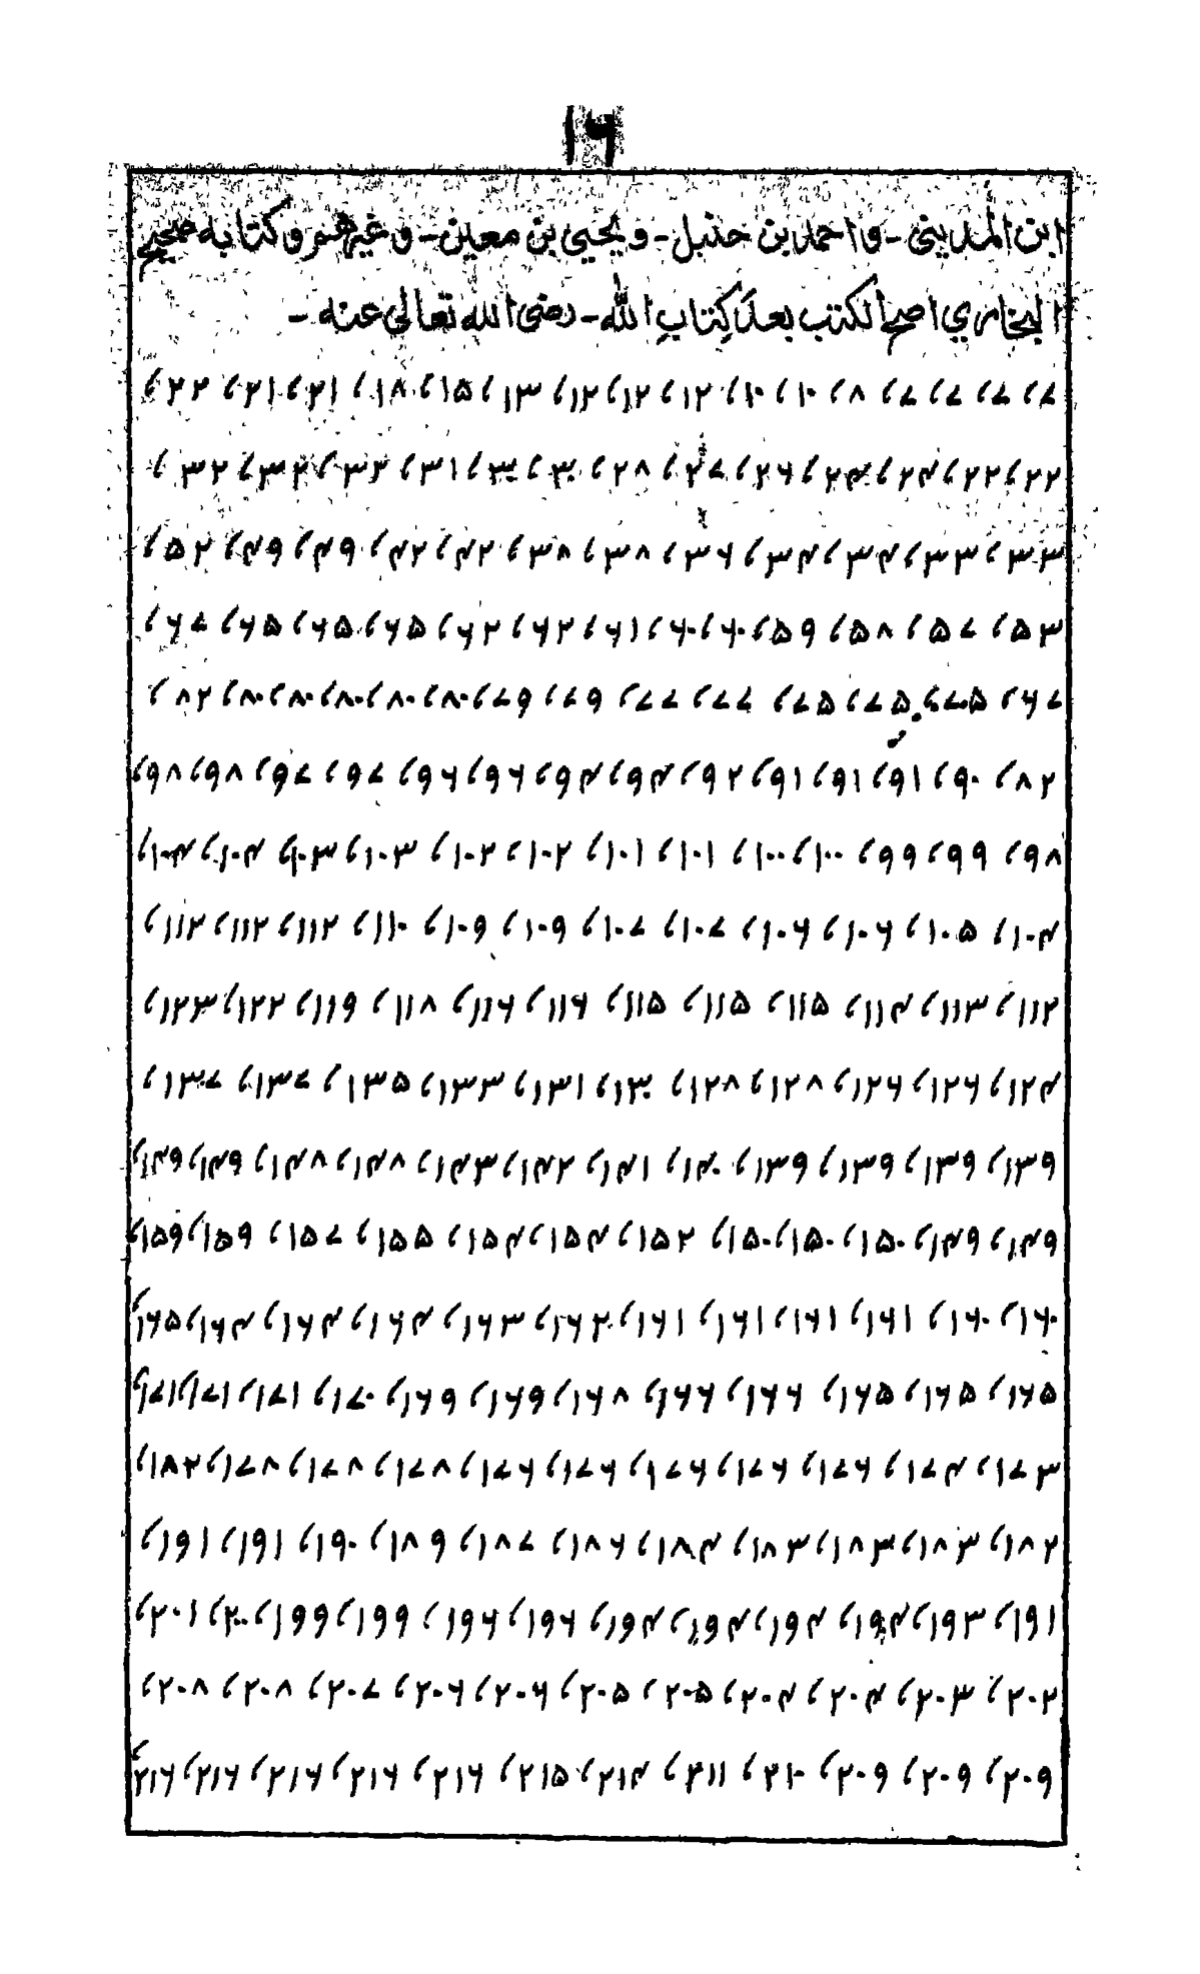 ۱۶
ابن المديني - و احمد بن حنبل - و يحيي بن معين - و غيرهم و كتابه صحيح
البخاري اصح الكتب بعد كِتابِ الله - رضى الله تعالى عنه -
۷، ۷، ۷، ۷، ۸، ۱۰، ۱۰، ۱۲، ۱۲، ۱۲، ۱۳، ۱۵، ۱۸، ۲۱، ۲۱، ۲۲،
۲۲، ۲۲، ۲۴، ۲۴، ۲۶، ۲۷، ۲۸، ۳۰، ۳۰، ۳۱، ۳۲، ۳۲، ۳۲،
۳۳، ۳۳، ۳۴، ۳۴، ۳۶، ۳۸، ۳۸، ۴۲، ۴۲، ۴۹، ۴۹، ۵۲،
۵۳، ۵۷، ۵۸، ۵۹، ۶۰، ۶۰، ۶۱، ۶۲، ۶۲، ۶۵، ۶۵، ۶۵، ۶۷،
۶۷، ۷۵، ۷۵، ۷۵، ۷۷، ۷۷، ۷۹، ۷۹، ۸۰، ۸۰، ۸۰، ۸۰، ۸۰، ۸۲،
۸۲، ۹۰، ۹۱، ۹۱، ۹۱، ۹۲، ۹۴، ۹۴، ۹۶، ۹۶، ۹۷، ۹۷، ۹۸، ۹۸،
۹۸، ۹۹، ۹۹، ۱۰۰، ۱۰۰، ۱۰۱، ۱۰۱، ۱۰۲، ۱۰۲، ۱۰۳، ۱۰۳، ۱۰۴، ۱۰۴،
۱۰۴، ۱۰۵، ۱۰۶، ۱۰۶، ۱۰۷، ۱۰۷، ۱۰۹، ۱۰۹، ۱۱۰، ۱۱۲، ۱۱۲، ۱۱۲،
۱۱۲، ۱۱۳، ۱۱۴، ۱۱۵، ۱۱۵، ۱۱۵، ۱۱۶، ۱۱۶، ۱۱۸، ۱۱۹، ۱۲۲، ۱۲۳،
۱۲۴، ۱۲۶، ۱۲۶، ۱۲۸، ۱۲۸، ۱۳۰، ۱۳۱، ۱۳۳، ۱۳۵، ۱۳۷، ۱۳۷،
۱۳۹، ۱۳۹، ۱۳۹، ۱۳۹، ۱۴۰، ۱۴۱، ۱۴۲، ۱۴۳، ۱۴۸، ۱۴۸، ۱۴۹، ۱۴۹،
۱۴۹، ۱۴۹، ۱۵۰، ۱۵۰، ۱۵۰، ۱۵۲، ۱۵۴، ۱۵۴، ۱۵۵، ۱۵۷، ۱۵۹، ۱۵۹،
۱۶۰، ۱۶۰، ۱۶۱، ۱۶۱، ۱۶۱، ۱۶۱، ۱۶۲، ۱۶۳، ۱۶۴، ۱۶۴، ۱۶۴، ۱۶۵،
۱۶۵، ۱۶۵، ۱۶۵، ۱۶۶، ۱۶۶، ۱۶۸، ۱۶۹، ۱۶۹، ۱۷۰، ۱۷۱، ۱۷۱، ۱۷۱،
۱۷۳، ۱۷۴، ۱۷۶، ۱۷۶، ۱۷۶، ۱۷۶، ۱۷۶، ۱۷۸، ۱۷۸، ۱۷۸، ۱۸۲،
۱۸۲، ۱۸۳، ۱۸۳، ۱۸۳، ۱۸۴، ۱۸۶، ۱۸۷، ۱۸۹، ۱۹۰، ۱۹۱، ۱۹۱،
۱۹۱، ۱۹۳، ۱۹۴، ۱۹۴، ۱۹۴، ۱۹۴، ۱۹۶، ۱۹۶، ۱۹۹، ۱۹۹، ۲۰۰، ۲۰۱،
۲۰۲، ۲۰۳، ۲۰۴، ۲۰۴، ۲۰۵، ۲۰۵، ۲۰۶، ۲۰۶، ۲۰۷، ۲۰۸، ۲۰۸،
۲۰۹، ۲۰۹، ۲۰۹، ۲۱۰، ۲۱۱، ۲۱۴، ۲۱۵، ۲۱۶، ۲۱۶، ۲۱۶، ۲۱۶، ۲۱۶،